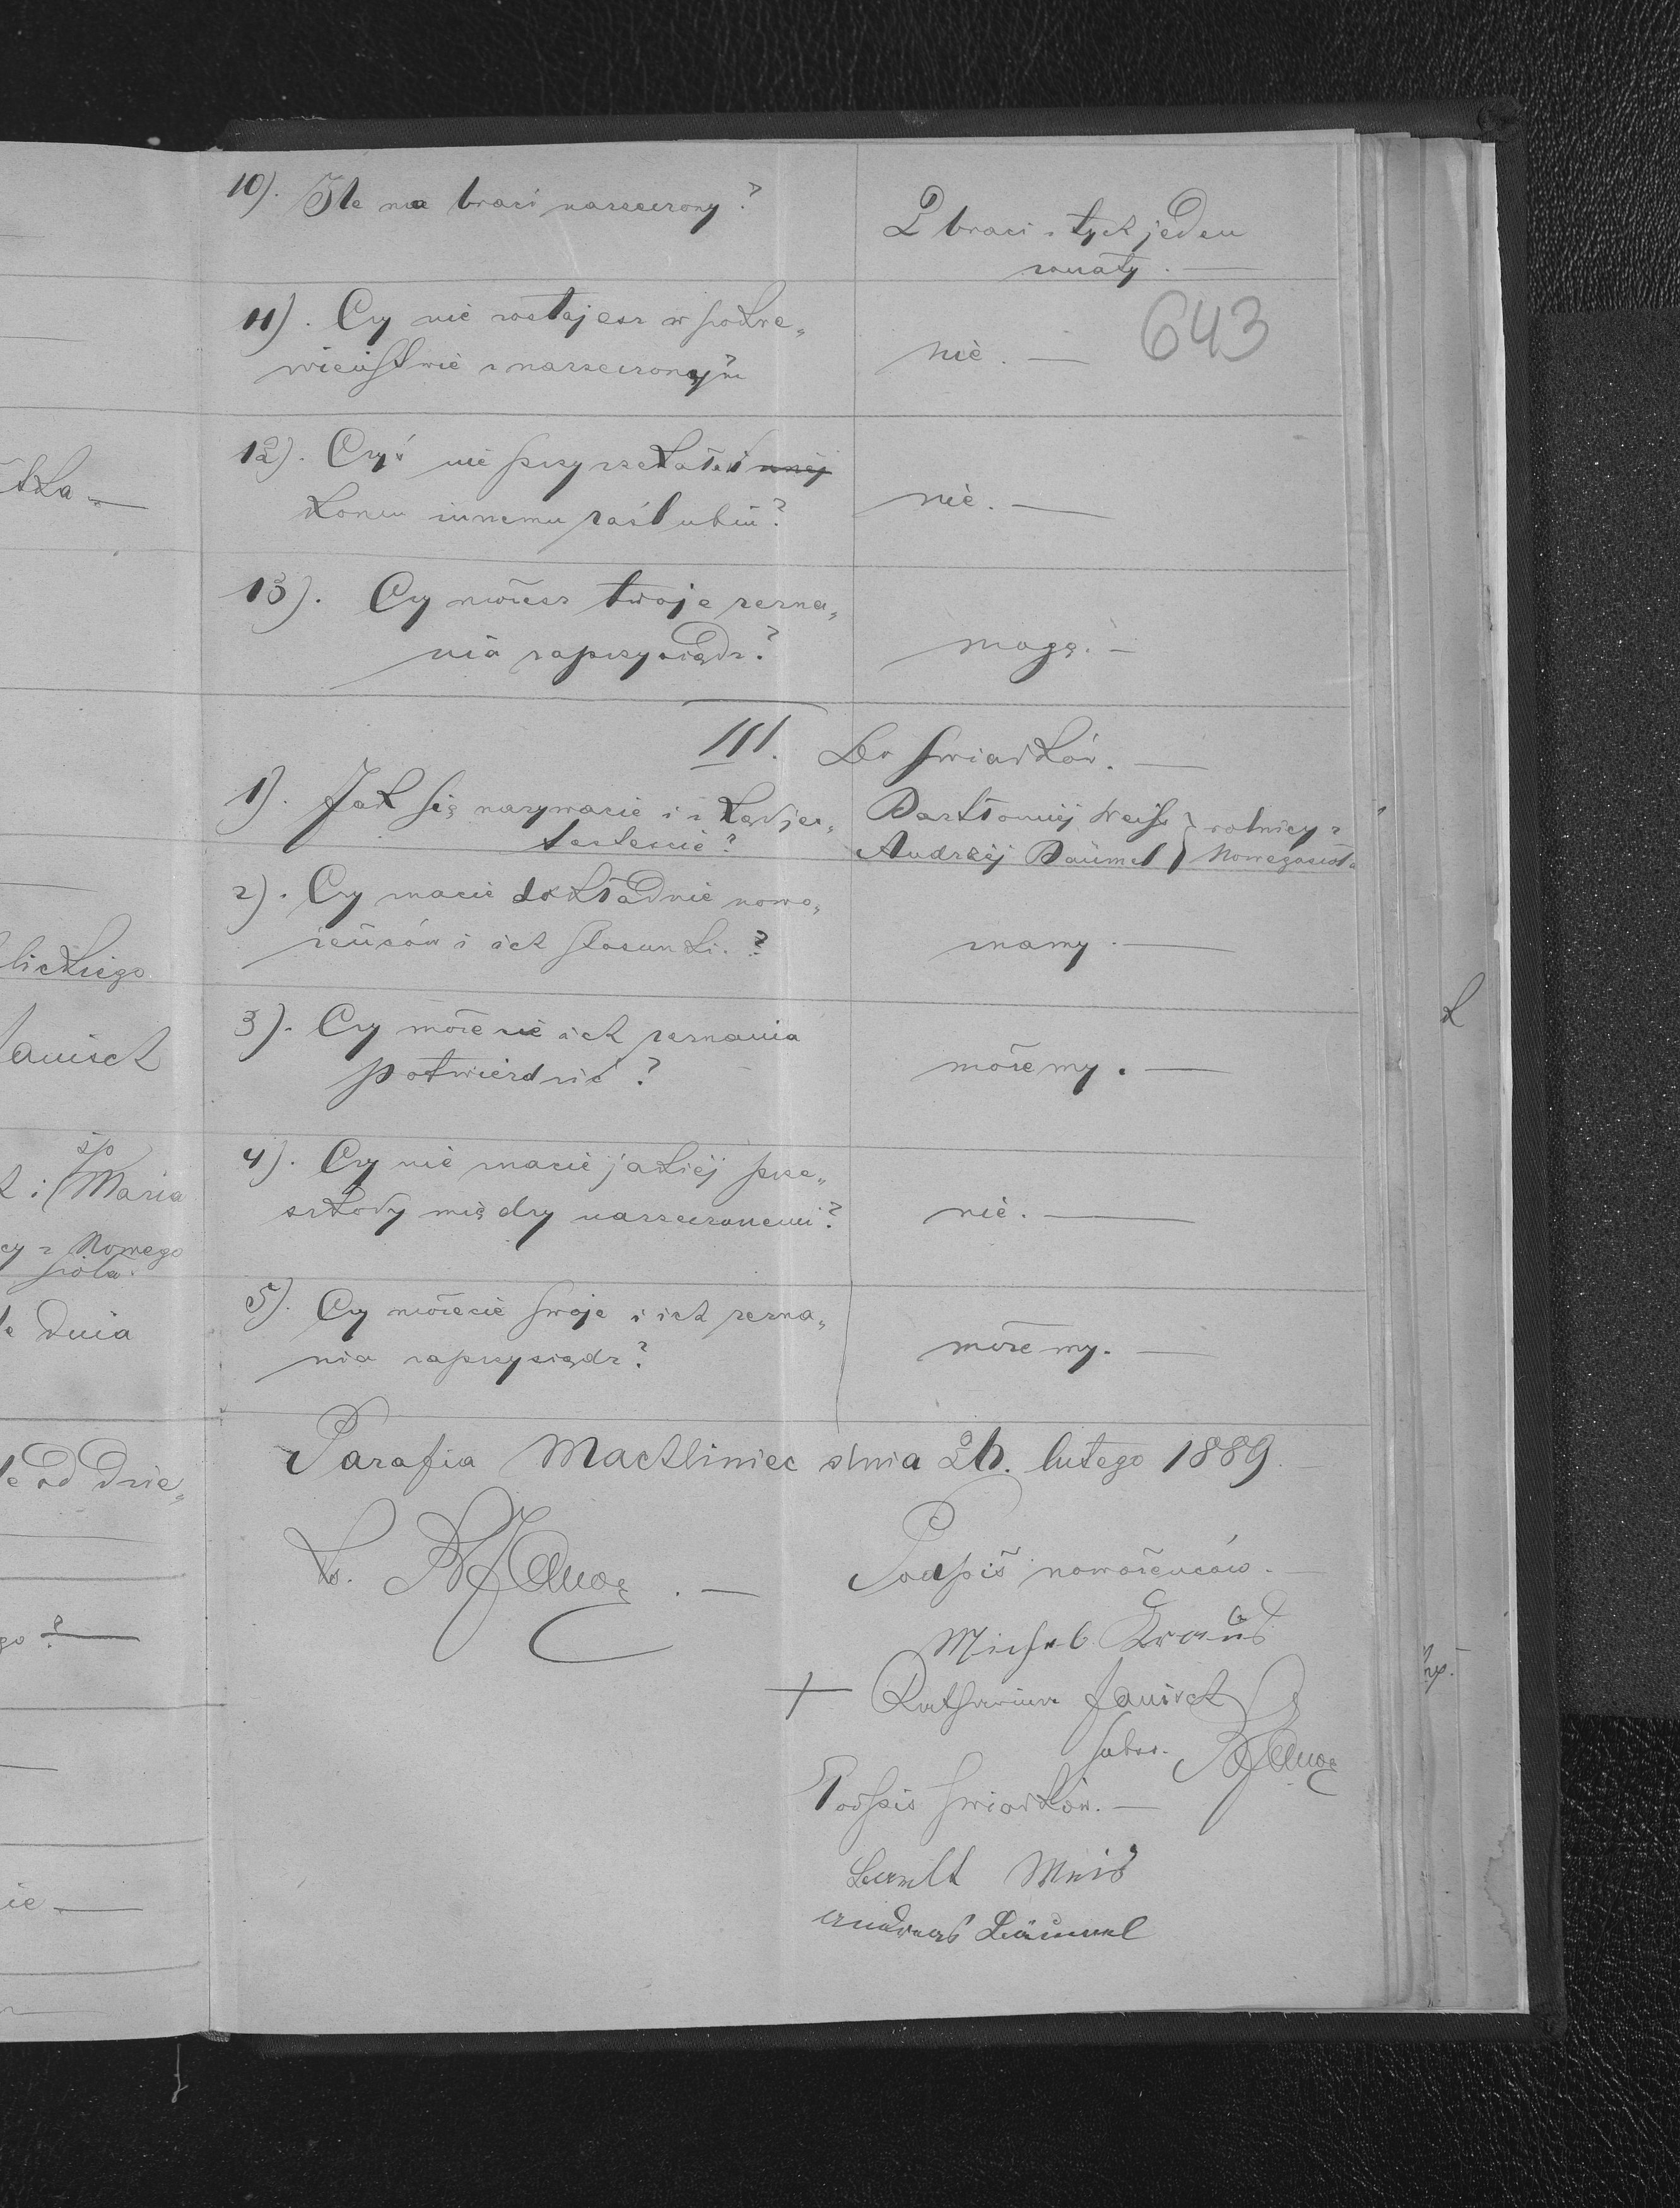 10). Ile ma braci narzeczony?
2 braci z tych jeden
żonaty. —
11). Czy nie zostajesz w pokre„
wieństwie z narzeczonym?
nie. —
643
12). Czyś nie przyrzekałeś
komu innemu zaślubin?
nie. —
13). Czy możesz twoje zezna„
nia zaprzysiądz?
mogę. —
III. Do świadków. —
1). Jak się nazywacie i z kąd jes„
testeście?
Bartłomiej Weiss } rolnicy z
Andrzéj Baümel } Nowegosioła
2). Czy macie dokładnie nowo„
żeńców i ich stosunki. ?
mamy. —
3). Czy możecie ich zeznania
potwierdzić ?
możemy. —
4). Czy nie macie jakiéj prze„
szkody między narzeczonemi?
nie. —
5). Czy możecie swoje i ich zezna„
nia zaprzysiądz?
możemy. —
Parafia Machliniec dnia 26. lutego 1889. —
Podpis nowożeńców. —
Michel Kraus
+ Katharina Janisch
Podpis świadków. —
Weis
Andreas Bäumel
tka —
lickiego
Janisch
śp
i Maria
cy z Nowego
sioła.
dnia
od dzie„
go ? —
ie —